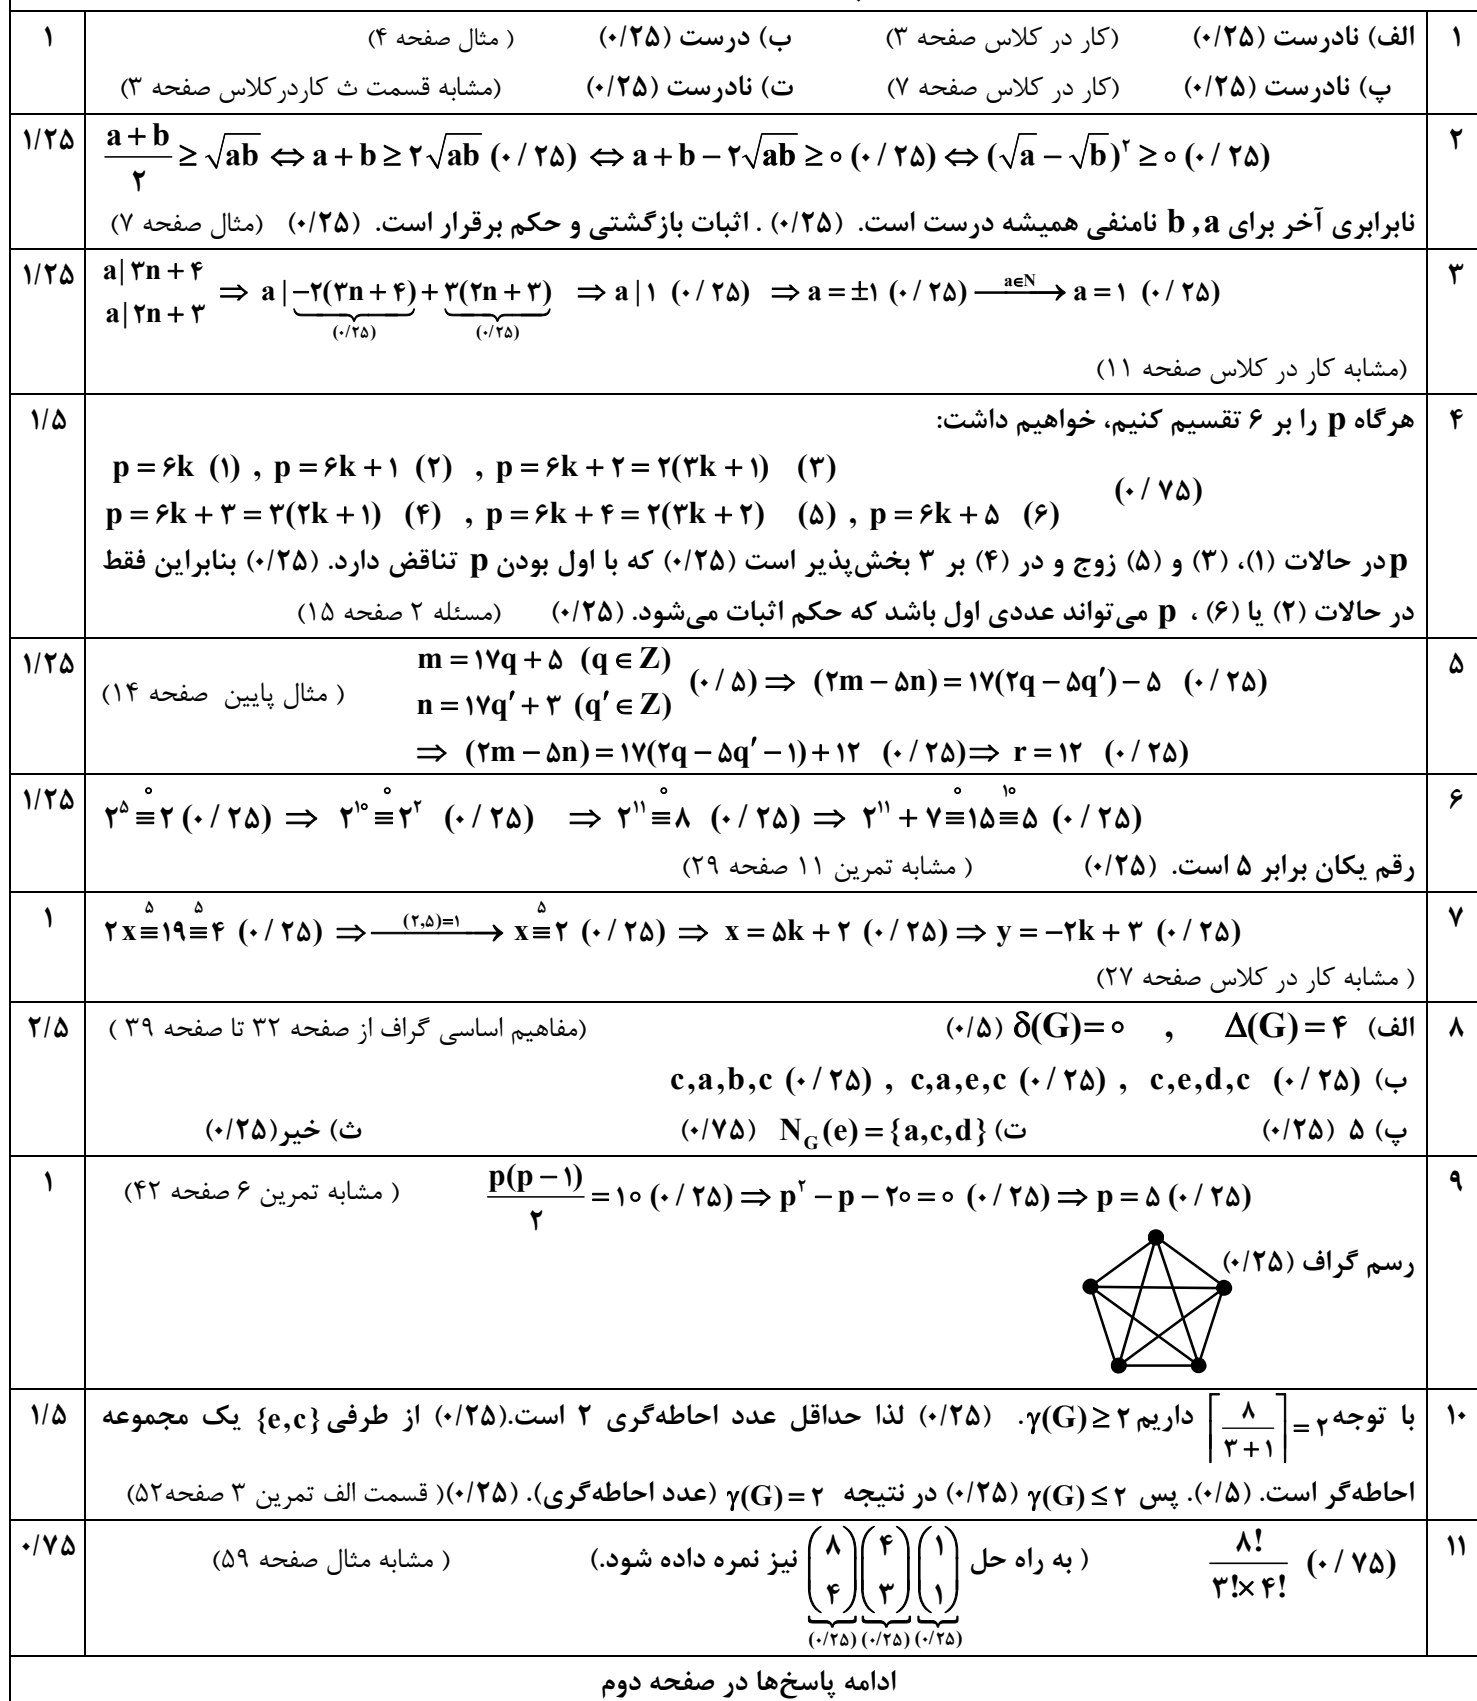 ۱ الف) نادرست (۰/۲۵) (کار در کلاس صفحه ۳) ب) درست (۰/۲۵) ( مثال صفحه ۴) ۱
پ) نادرست (۰/۲۵) (کار در کلاس صفحه ۷) ت) نادرست (۰/۲۵) (مشابه قسمت ث کاردرکلاس صفحه ۳)
۲ (a+b)/۲ ≥ √ab ⇔ a + b ≥ ۲√ab (۰/۲۵) ⇔ a + b − ۲√ab ≥ ۰ (۰/۲۵) ⇔ (√a − √b)^۲ ≥ ۰ (۰/۲۵) ۱/۲۵
نابرابری آخر برای b , a نامنفی همیشه درست است. (۰/۲۵) . اثبات بازگشتی و حکم برقرار است. (۰/۲۵) (مثال صفحه ۷)
۳ a | ۳n + ۴ , a | ۲n + ۳ ⇒ a | −۲(۳n + ۴) (۰/۲۵) + ۳(۲n + ۳) (۰/۲۵) ⇒ a | ۱ (۰/۲۵) ⇒ a = ±۱ (۰/۲۵) —a∈N→ a = ۱ (۰/۲۵) ۱/۲۵
(مشابه کار در کلاس صفحه ۱۱)
۴ هرگاه p را بر ۶ تقسیم کنیم، خواهیم داشت: ۱/۵
p = ۶k (۱) , p = ۶k + ۱ (۲) , p = ۶k + ۲ = ۲(۳k + ۱) (۳)
(۰/۷۵)
p = ۶k + ۳ = ۳(۲k + ۱) (۴) , p = ۶k + ۴ = ۲(۳k + ۲) (۵) , p = ۶k + ۵ (۶)
p در حالات (۱)، (۳) و (۵) زوج و در (۴) بر ۳ بخش‌پذیر است (۰/۲۵) که با اول بودن p تناقض دارد. (۰/۲۵) بنابراین فقط
در حالات (۲) یا (۶) ، p می‌تواند عددی اول باشد که حکم اثبات می‌شود. (۰/۲۵) (مسئله ۲ صفحه ۱۵)
۵ m = ۱۷q + ۵ (q ∈ Z) ۱/۲۵
n = ۱۷q′ + ۳ (q′ ∈ Z) (۰/۵) ⇒ (۲m − ۵n) = ۱۷(۲q − ۵q′) − ۵ (۰/۲۵) ( مثال پایین صفحه ۱۴)
⇒ (۲m − ۵n) = ۱۷(۲q − ۵q′ − ۱) + ۱۲ (۰/۲۵) ⇒ r = ۱۲ (۰/۲۵)
۶ ۲^۵ ≡° ۲ (۰/۲۵) ⇒ ۲^۱۰ ≡° ۲^۲ (۰/۲۵) ⇒ ۲^۱۱ ≡° ۸ (۰/۲۵) ⇒ ۲^۱۱ + ۷ ≡° ۱۵ ≡^۱۰ ۵ (۰/۲۵) ۱/۲۵
رقم یکان برابر ۵ است. (۰/۲۵) ( مشابه تمرین ۱۱ صفحه ۲۹)
۷ ۲x ≡^۵ ۱۹ ≡^۵ ۴ (۰/۲۵) ⇒ —(۲,۵)=۱→ x ≡^۵ ۲ (۰/۲۵) ⇒ x = ۵k + ۲ (۰/۲۵) ⇒ y = −۲k + ۳ (۰/۲۵) ۱
( مشابه کار در کلاس صفحه ۲۷)
۸ الف) Δ(G) = ۴ , δ(G) = ۰ (۰/۵) (مفاهیم اساسی گراف از صفحه ۳۲ تا صفحه ۳۹ ) ۲/۵
ب) c,a,b,c (۰/۲۵) , c,a,e,c (۰/۲۵) , c,e,d,c (۰/۲۵)
پ) ۵ (۰/۲۵) ت) N_G(e) = {a,c,d} (۰/۷۵) ث) خیر(۰/۲۵)
۹ p(p − ۱)/۲ = ۱۰ (۰/۲۵) ⇒ p^۲ − p − ۲۰ = ۰ (۰/۲۵) ⇒ p = ۵ (۰/۲۵) ( مشابه تمرین ۶ صفحه ۴۲) ۱
رسم گراف (۰/۲۵)
۱۰ با توجه ⌈۸/(۳+۱)⌉ = ۲ داریم γ(G) ≥ ۲. (۰/۲۵) لذا حداقل عدد احاطه‌گری ۲ است.(۰/۲۵) از طرفی {e,c} یک مجموعه ۱/۵
احاطه‌گر است. (۰/۵). پس γ(G) ≤ ۲ (۰/۲۵) در نتیجه γ(G) = ۲ (عدد احاطه‌گری). (۰/۲۵)( قسمت الف تمرین ۳ صفحه۵۲)
۱۱ ۸!/(۳!×۴!) (۰/۷۵) ( به راه حل (۸ ۴)(۴ ۳)(۱ ۱) نیز نمره داده شود.) ( مشابه مثال صفحه ۵۹) ۰/۷۵
(۰/۲۵) (۰/۲۵) (۰/۲۵)
ادامه پاسخ‌ها در صفحه دوم